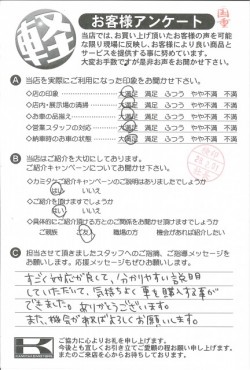 軽
お客様アンケート
当店では、お買い上げ頂いたお客様の声を可能
な限り現場に反映し、お客様により良い商品と
サービスを提供する事に努めています。
大変お手数ですが是非お声をお聞かせ下さい。
A 当店を実際にご利用になった印象をお聞かせ下さい。
◇店の印象 大満足 満足 ふつう やや不満 不満
◇店内・展示場の清掃 大満足 満足 ふつう やや不満 不満
◇お車の品揃え 大満足 満足 ふつう やや不満 不満
◇営業スタッフの対応 大満足 満足 ふつう やや不満 不満
◇納車時のお車の状態 大満足 満足 ふつう やや不満
B 当店はご紹介を大切にしております。
ご紹介キャンペーンについてお聞かせ下さい。
◇カミタケご紹介キャンペーンのご説明はありましたでしょうか
はい いいえ
◇ご紹介を頂けますでしょうか
はい いいえ
◇具体的にご紹介頂ける方とのご関係をお聞かせ頂けますでしょうか
ご親族 ご友人 職場の方 機会があれば紹介したい
C 担当させて頂きましたスタッフへのご指摘、ご指導メッセージを
お願いします。応援メッセージもぜひお願いします。
すごく対応が良くて、分かりやすい説明
していただいて、気持ちよく車を購入する事が
できました。ありがとうございます。
また、機会があればよろしくお願いします。
ご協力に心よりお礼を申し上げます。
今後とも宜しくお引き立てご愛顧の程お願い申し上げます。
またのご来店を心からお待ちしております。